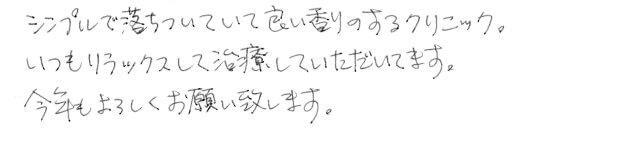 シンプルで落ちついていて良い香りのするクリニック。
いつもリラックスして治療していただいてます。
今年もよろしくお願い致します。